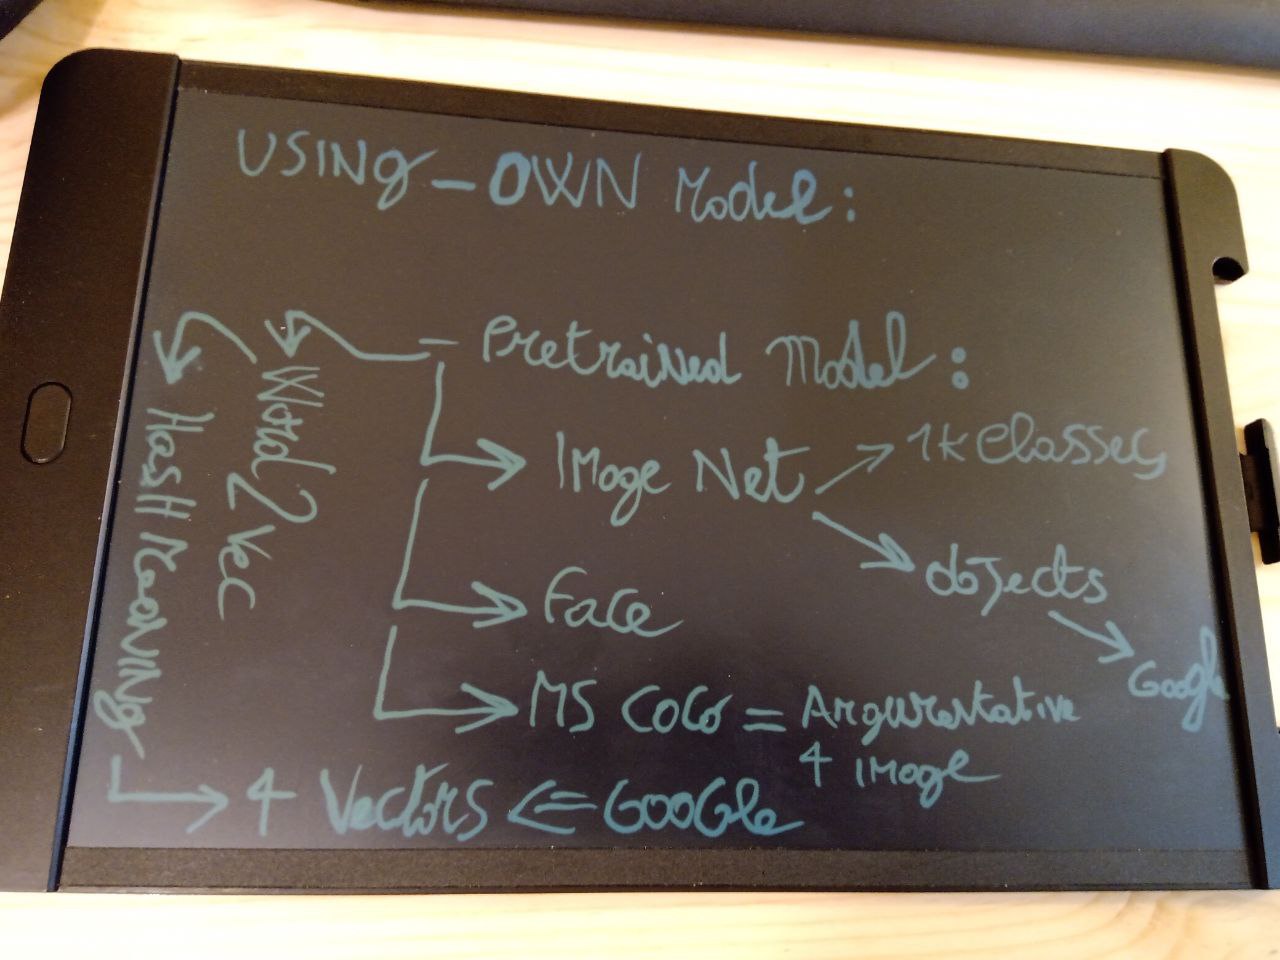 USINg - OWN Model:
- Pretrained Model:
Image Net
1k classes
objects
Google
Face
MS COCO =
4 image
Word2Vec
Hash Meaning
4 Vectors <= Google